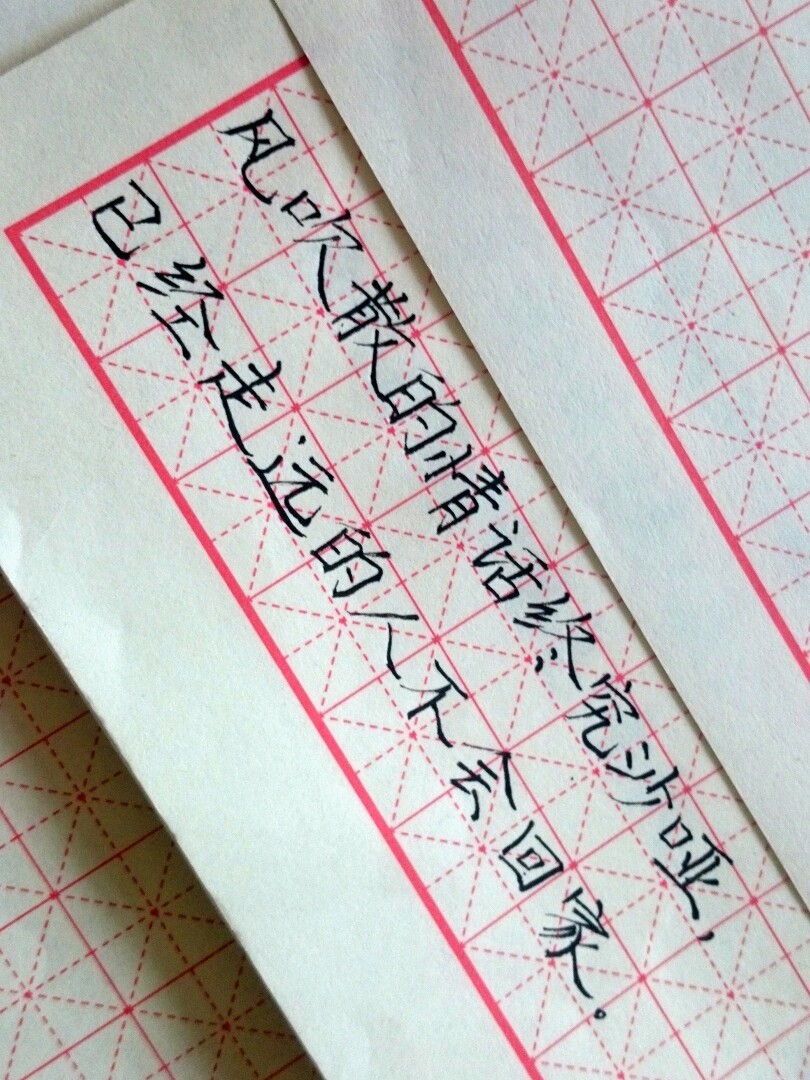 风吹散的情话终究沙哑，
已经走远的人不会回家。